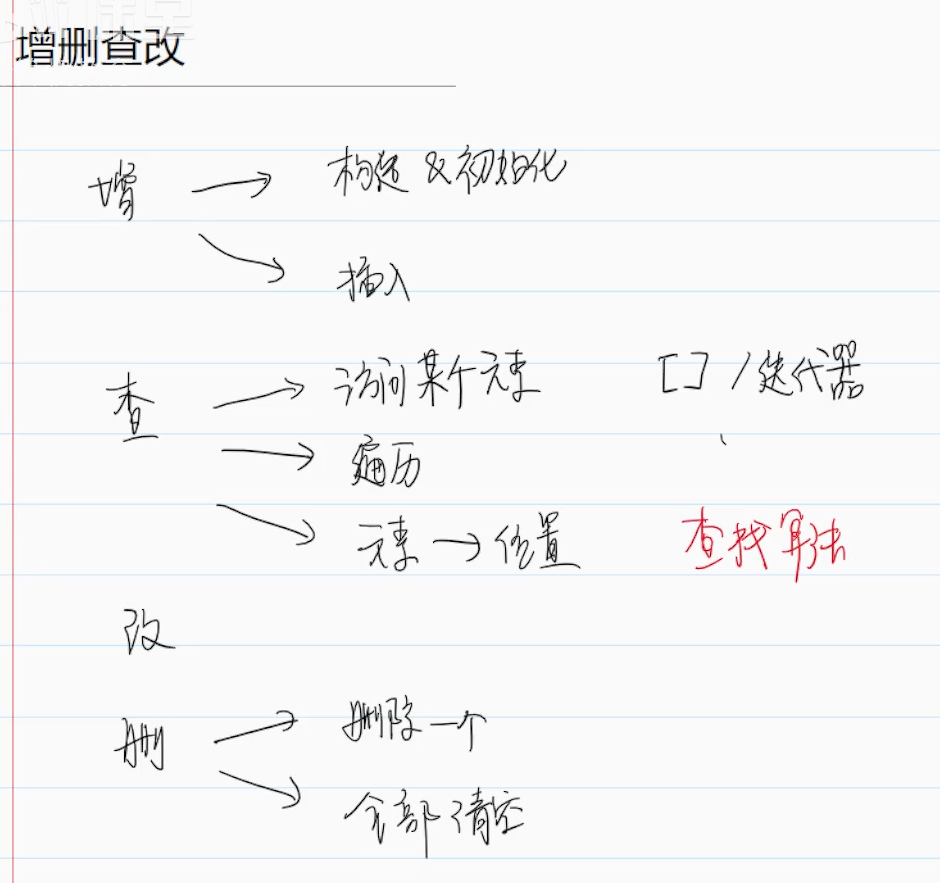 增删查改
增 → 构造 & 初始化
→ 插入
查 → 访问某个元素 [ ] / 迭代器
→ 遍历
→ 元素 → 位置 查找算法
改
删 → 删除一个
→ 全部清空